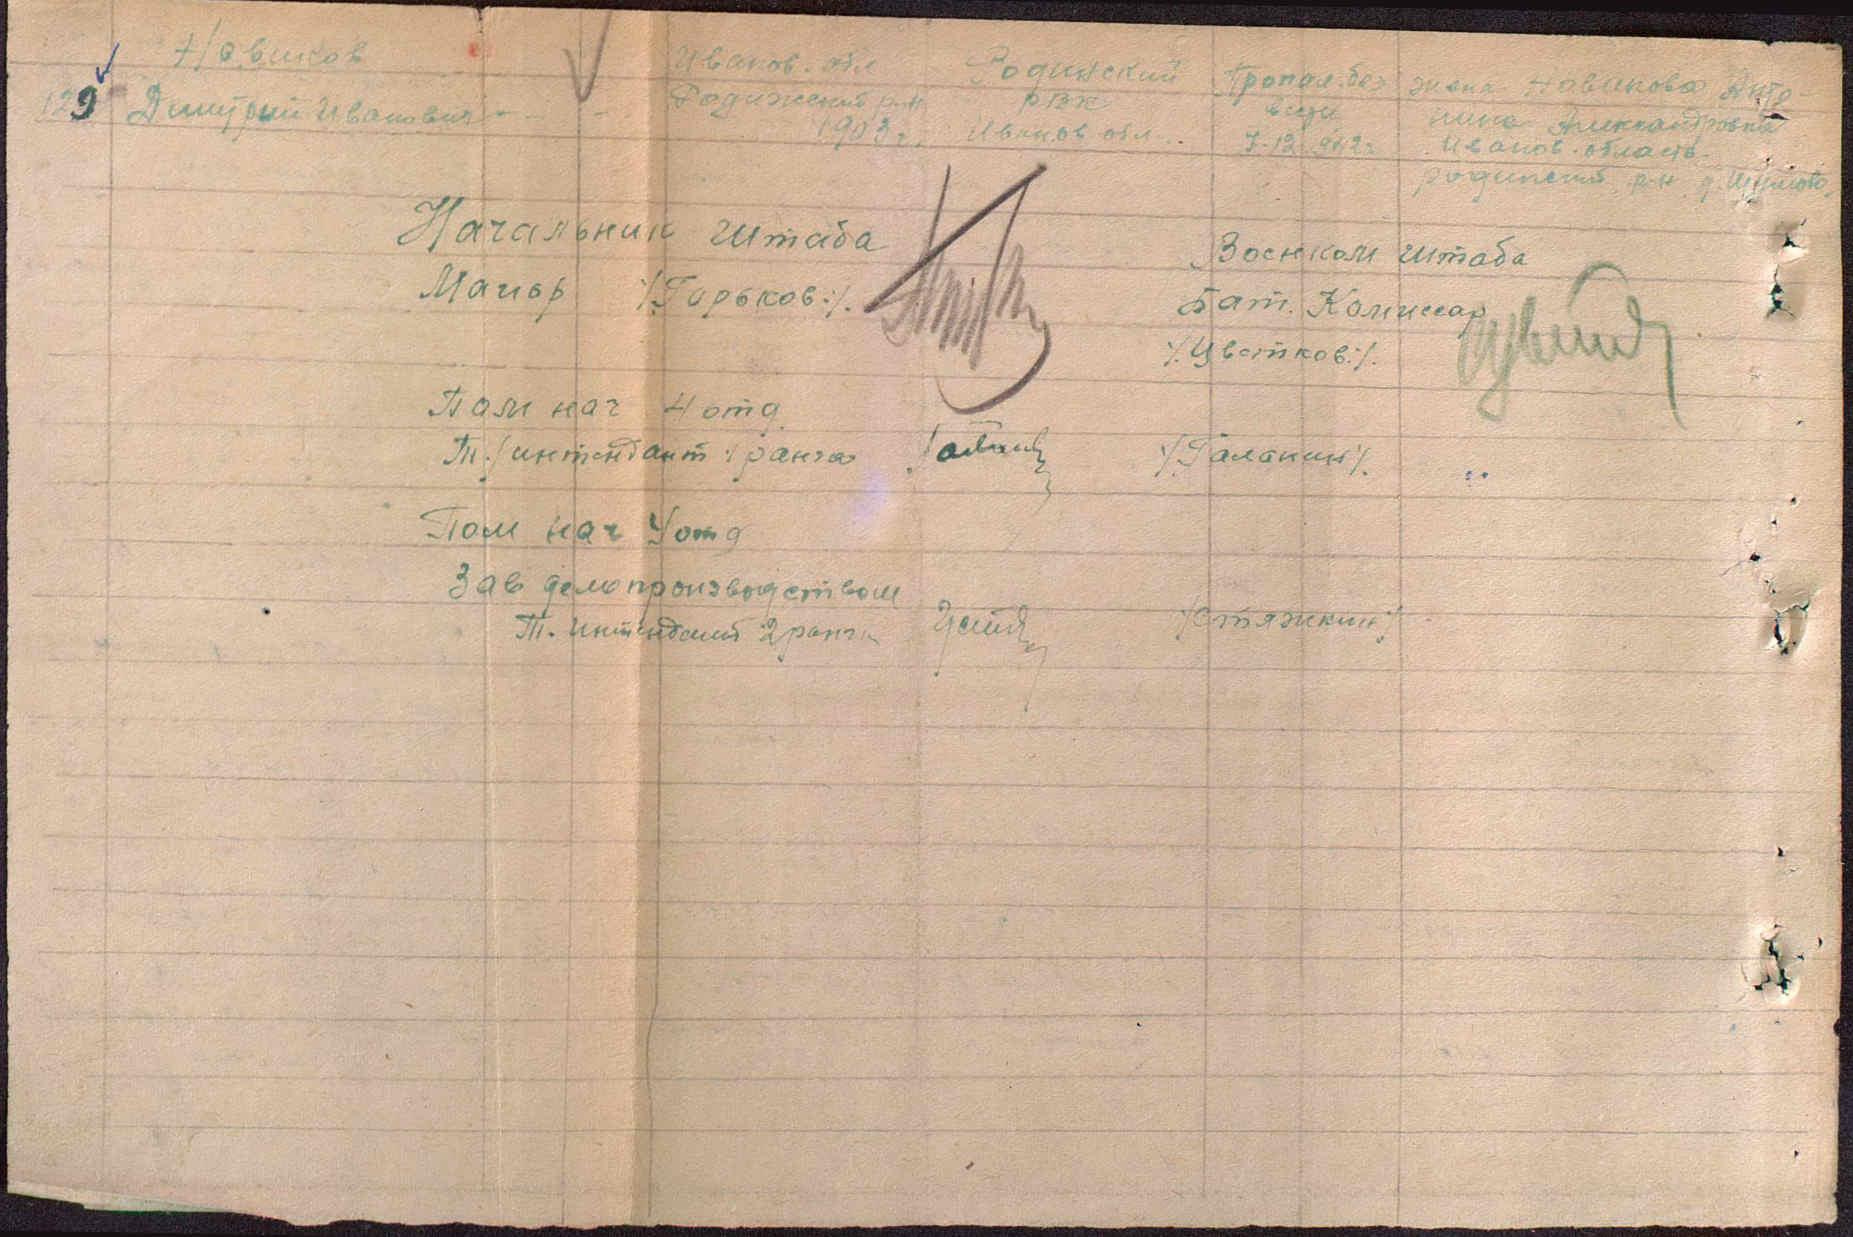 129 Новиков
Дмитрий Иванович - - -
Иванов. обл
Родинский р-н
1903 г.
Родинский
РВК
Иванов обл.
Пропал. без
вести
7-12 942 г
жена Новикова Анто-
нина Александровна
Иванов. область.
родинский р-н д.
Начальник Штаба
Майор /:Горьков:/.
Военком Штаба
Бат. Комиссар
/:Цветков:/.
Пом нач 4 отд
Т./интендант 1 ранга /:Галакин:/.
Пом нач 4 отд
Зав делопроизводством
Т. интендант 2 ранга /:Стяжкин:/